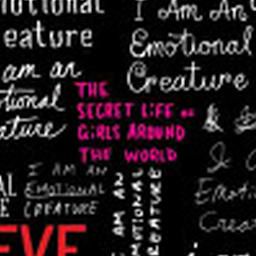 Emotional
Creature
am an
I Am An
Emotional
Creature
THE
SECRET LIFE OF
GIRLS AROUND
THE WORLD
I AM AN
EMOTIONAL
CREATURE
I AM AN
EMOTIONAL
CREATURE
EVE